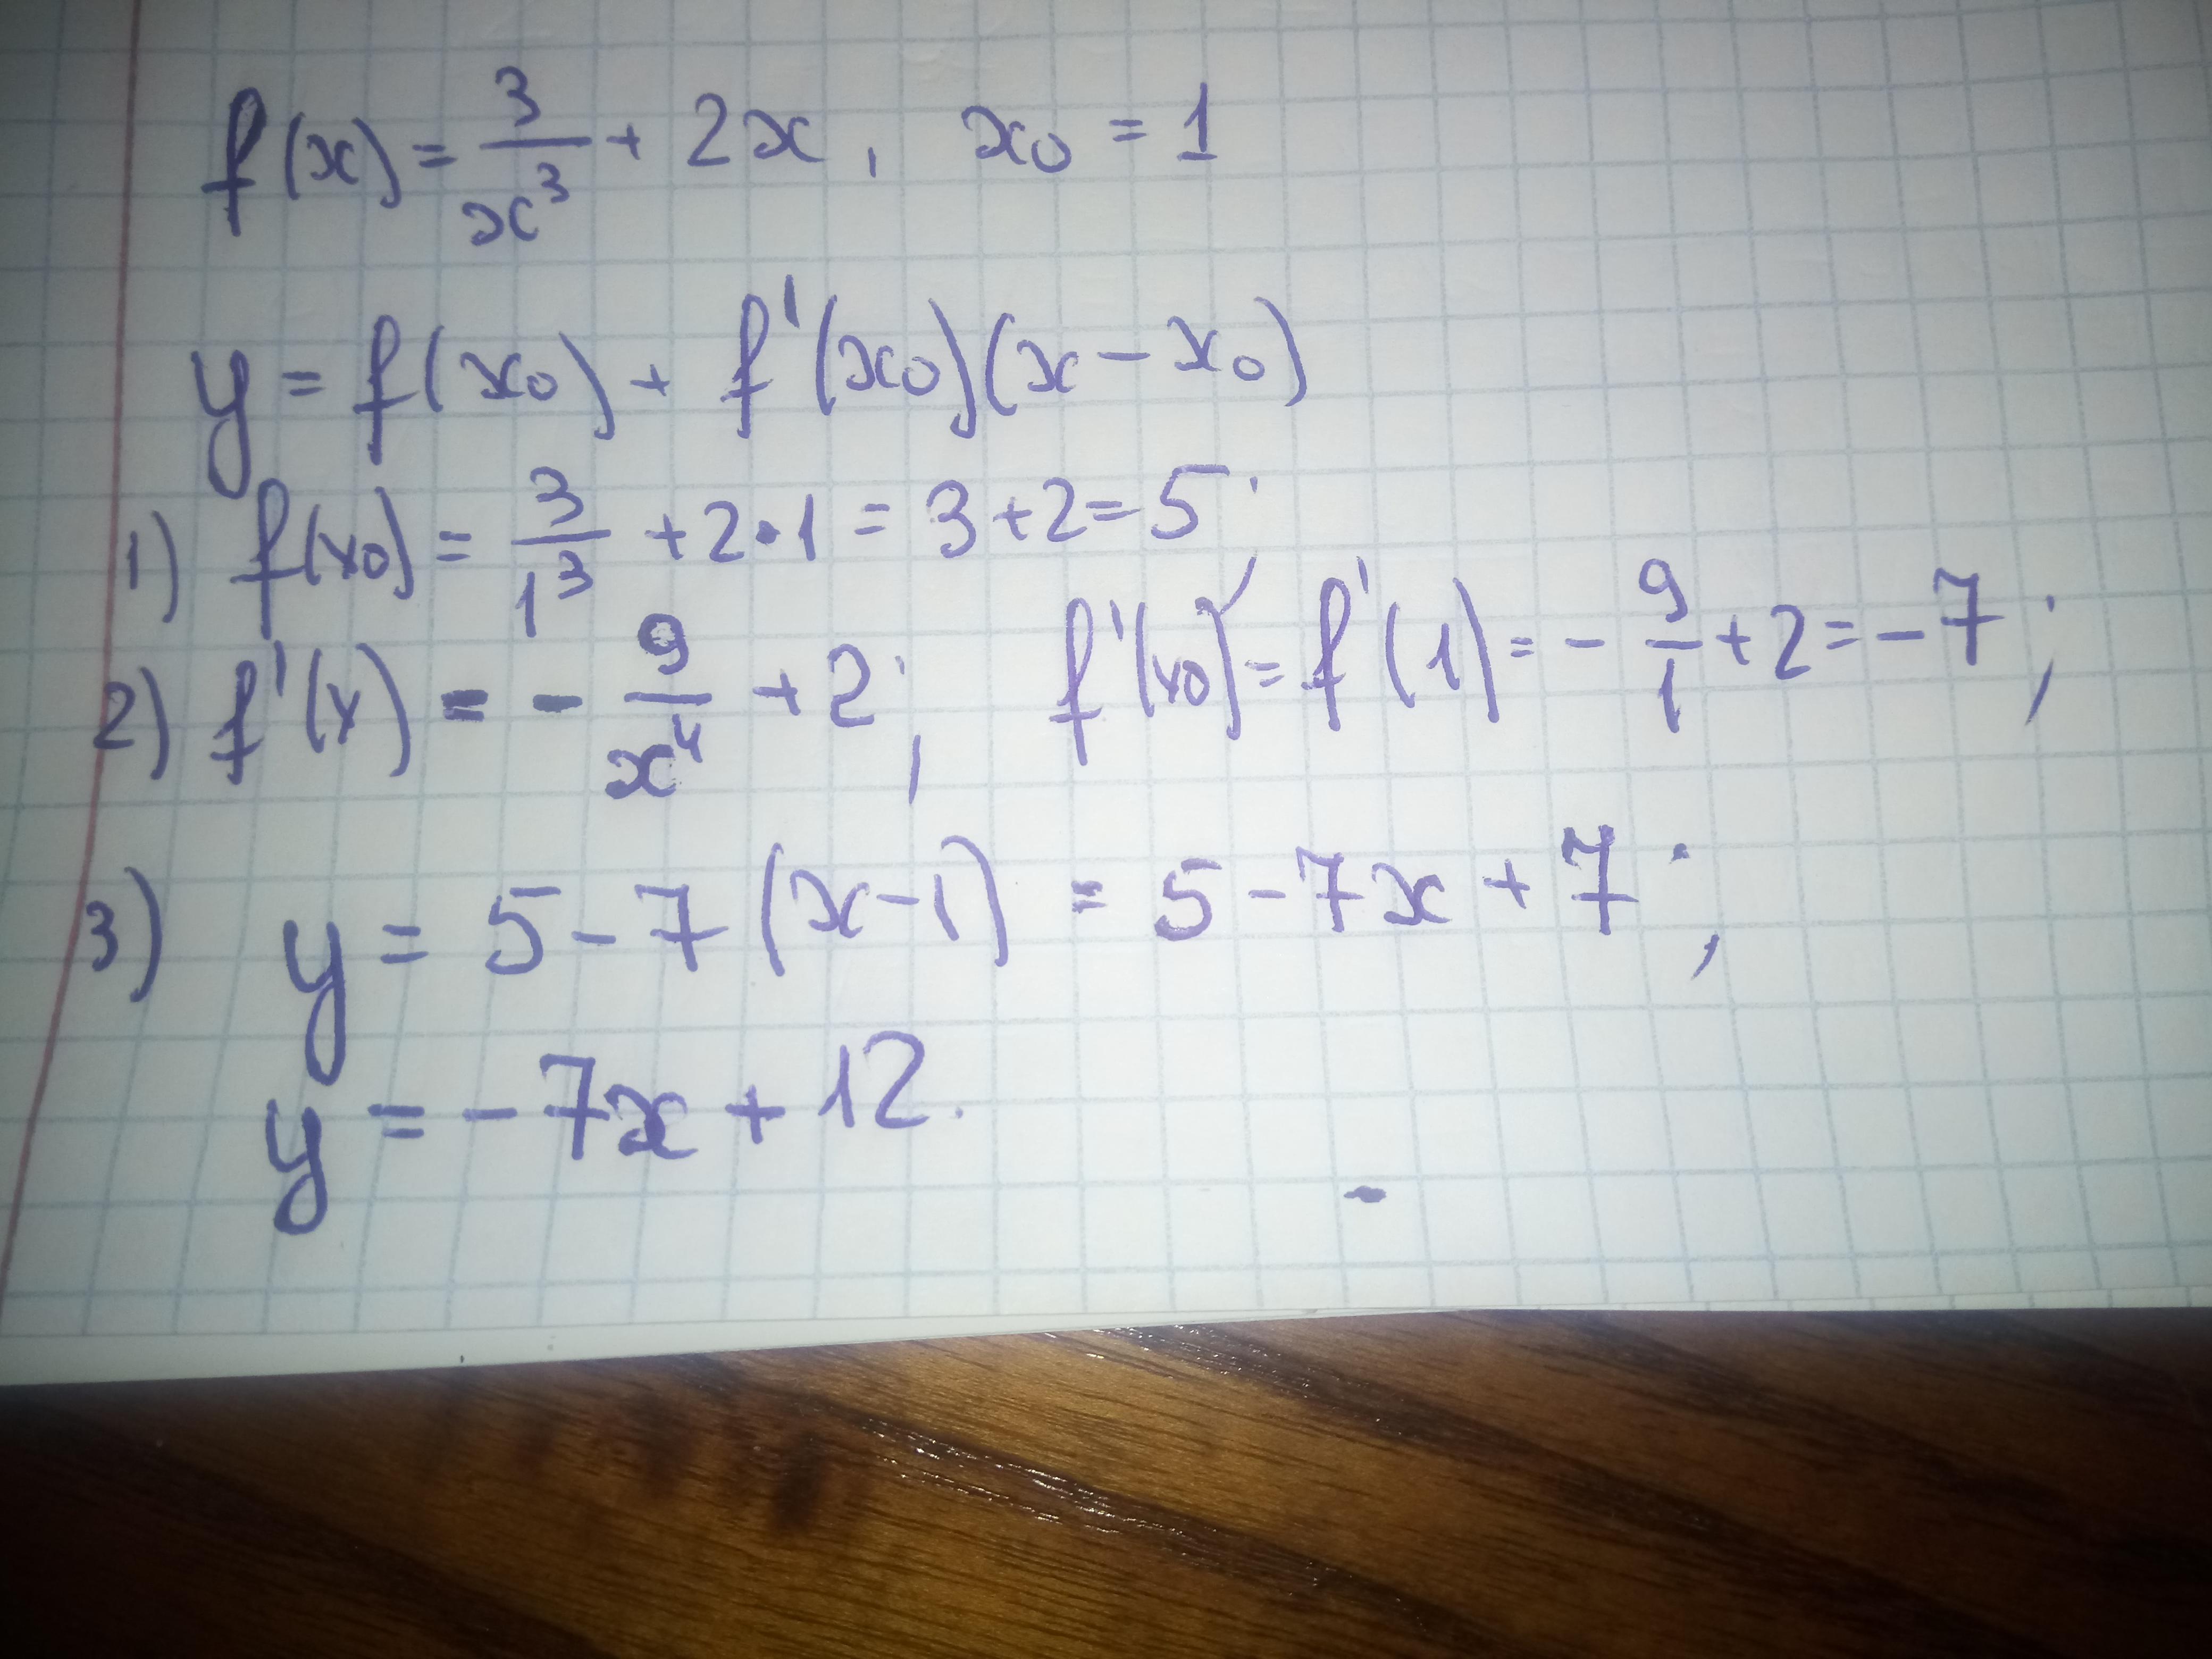 f(x) = 3/x³ + 2x, x₀ = 1
y = f(x₀) + f'(x₀)(x - x₀)
1) f(x₀) = 3/1³ + 2·1 = 3 + 2 = 5;
2) f'(x) = - 9/x⁴ + 2; f'(x₀) = f'(1) = - 9/1 + 2 = -7;
3) y = 5 - 7(x-1) = 5 - 7x + 7;
y = -7x + 12.